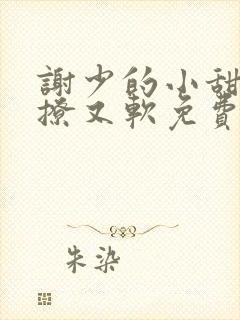 謝少的小甜
撩又軟免費
朱染